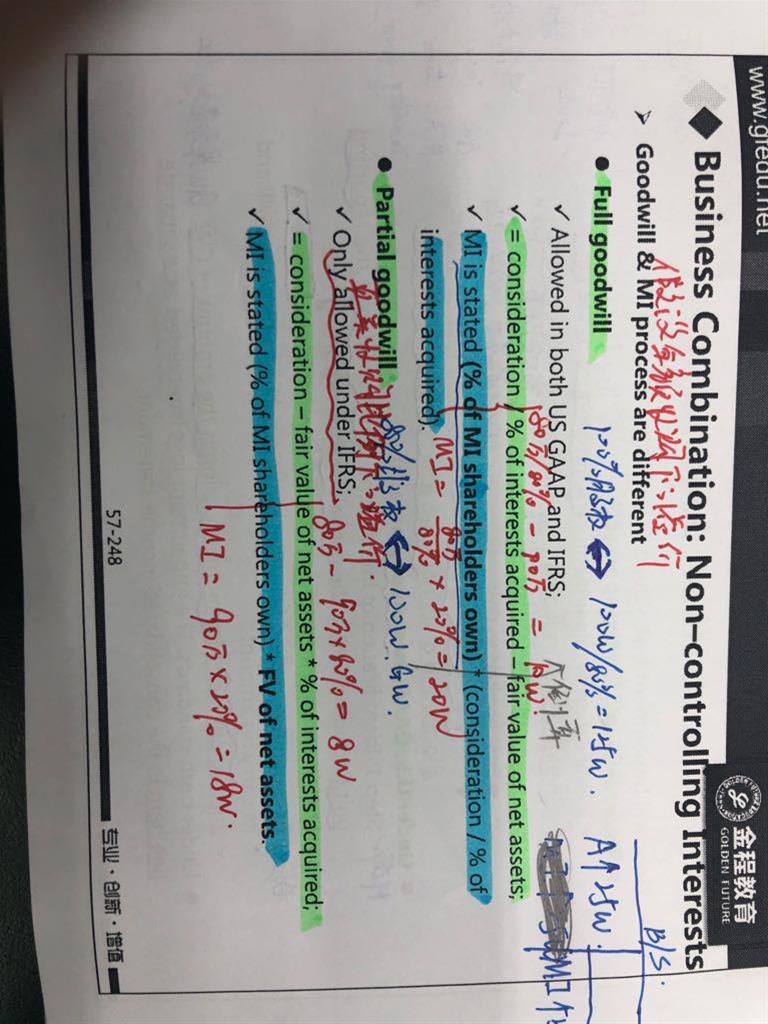 www.gfedu.net
金程教育
GOLDEN FUTURE
Business Combination: Non-controlling Interests
B/S.
Goodwill & MI process are different
Full goodwill
100%股权 ↔ 100W/80%=125W.
Allowed in both US GAAP and IFRS;
80万/80% - 90万 = 10W
= consideration / % of interests acquired – fair value of net assets;
MI is stated (% of MI shareholders own) * (consideration / % of
interests acquired).
MI = 80万/80% × 20% = 20W
Partial goodwill
80%股权 ↔ 100W. GW.
Only allowed under IFRS;
80万 - 90万×80% = 8W
= consideration – fair value of net assets * % of interests acquired;
MI is stated (% of MI shareholders own) * FV of net assets.
MI = 90万×20% = 18W.
57-248
专业·创新·增值